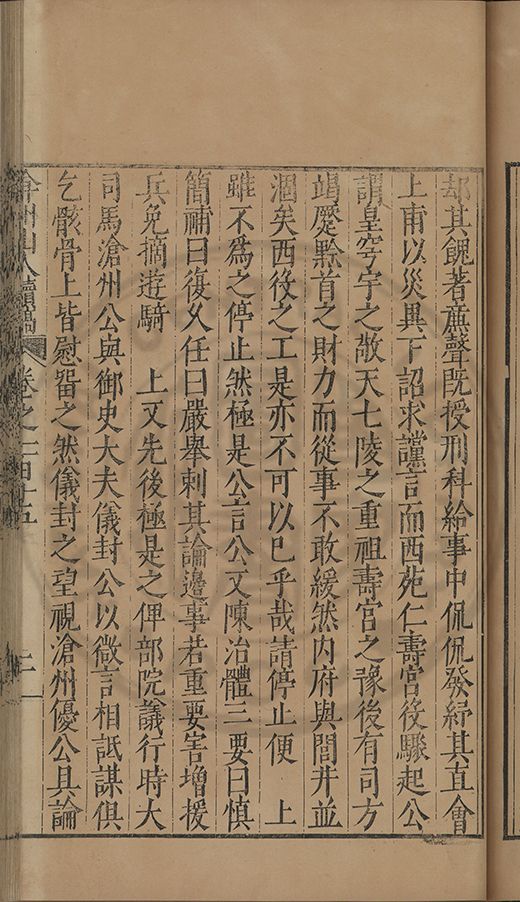 却其餽著廉聲既授刑科給事中侃侃發紓其直會
上甫以災異下詔求讜言而西苑仁壽宮役驟起公
謂皇穹宇之敬天七陵之重祖壽宮之豫後有司方
竭蹙黔首之財力而從事不敢緩然內府與閭井並
涸矣西役之工是亦不可以已乎哉請停止便　上
雖不為之停止然極是公言公又陳治體三要曰慎
簡補曰復久任曰嚴舉刺其論邊事若重要害增援
兵免摘遊騎　上又先後極是之俾部院議行時大
司馬滄州公與御史大夫儀封公以微言相詆謀俱
乞骸骨上皆慰留之然儀封之望視滄州優公具論
弇州山人續稿　卷之一百十五　二